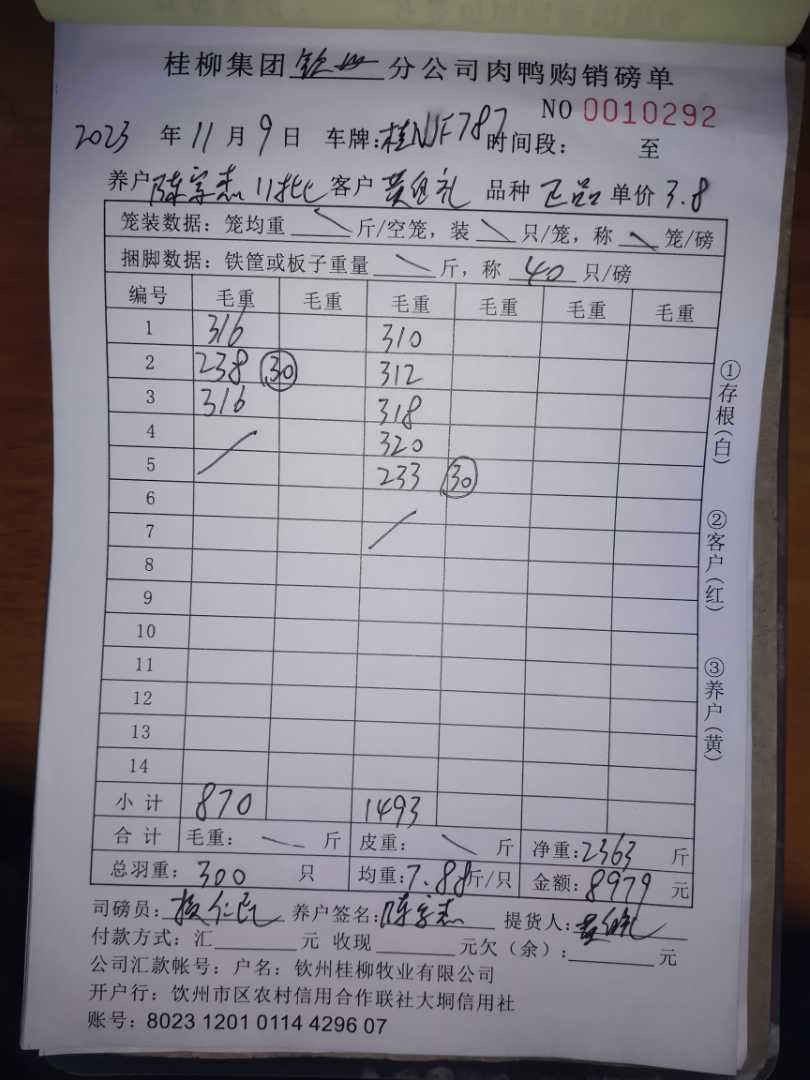 桂柳集团钦州分公司肉鸭购销磅单
NO 0010292
2023 年 11 月 9 日 车牌:桂NJF787 时间段: 至
养户 陈宗杰 11批 客户 黄 礼 品种 正品 单价 3.8
笼装数据: 笼均重 \ 斤/空笼, 装 \ 只/笼, 称 \ 笼/磅
捆脚数据: 铁筐或板子重量 \ 斤, 称 40 只/磅
编号 毛重 毛重 毛重 毛重 毛重 毛重
1 316 310
2 238 30 312
3 316 318
4 320
5 233 30
6
7
8
9
10
11
12
13
14
小计 870 1493
合计 毛重: \ 斤 皮重: \ 斤 净重:2363 斤
总羽重: 300 只 均重:7.88斤/只 金额:8979 元
司磅员: 仁 养户签名:陈宗杰 提货人:黄 礼
付款方式: 汇 元 收现 元欠(余): 元
公司汇款帐号: 户名: 钦州桂柳牧业有限公司
开户行: 钦州市区农村信用合作联社大垌信用社
账号: 8023 1201 0114 4296 07
①存根(白)
②客户(红)
③养户(黄)